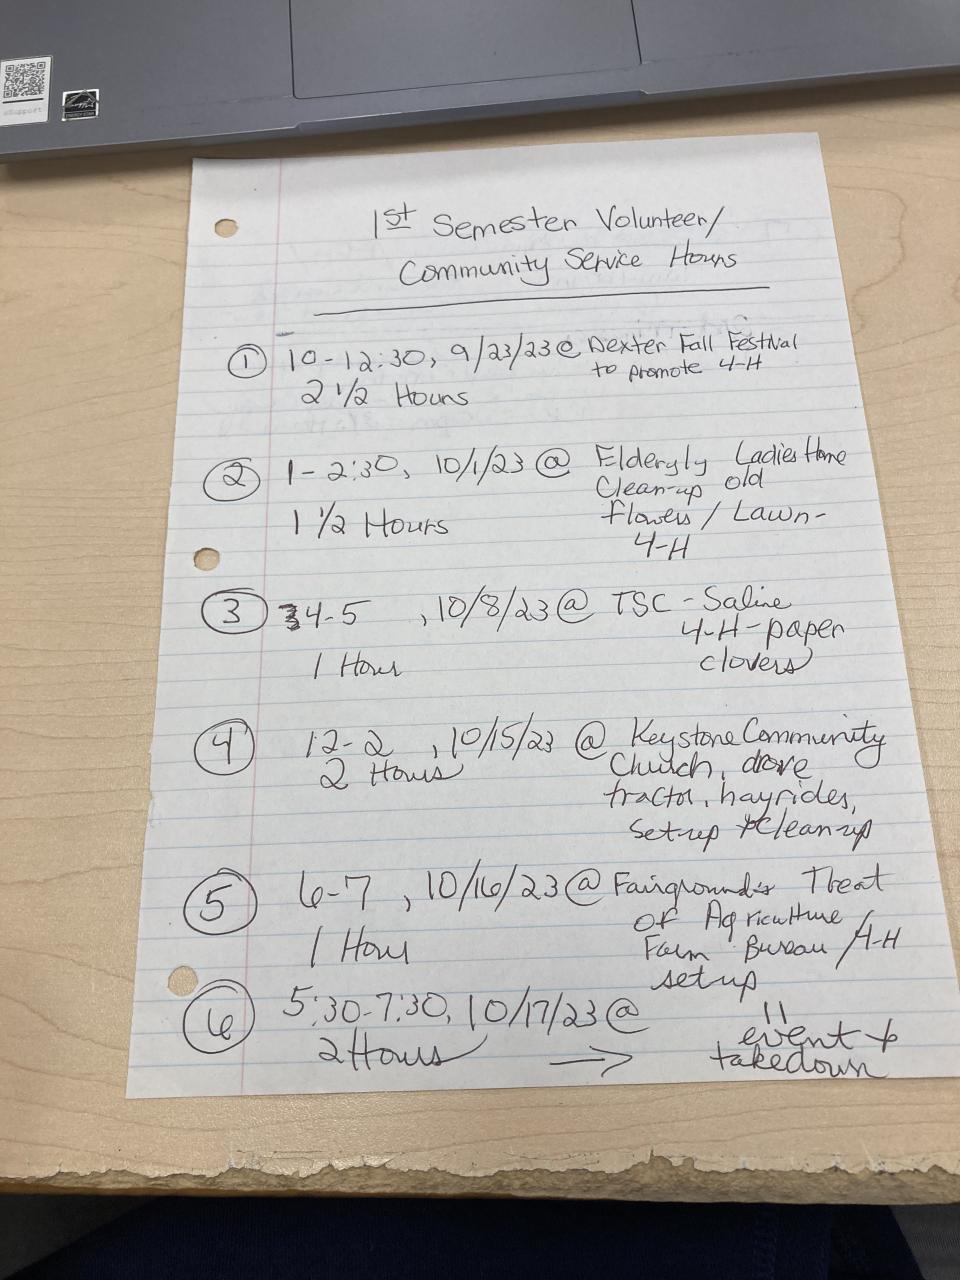 1st Semester Volunteer/
Community Service Hours
① 10-12:30, 9/23/23 @ Dexter Fall Festival
to promote 4-H
2 1/2 Hours
② 1-2:30, 10/1/23 @ Elderyly Ladies Home
Clean-up old
1 1/2 Hours flowers / Lawn-
4-H
③ 4-5, 10/8/23 @ TSC - Saline
4-H-paper
1 Hour clovers
④ 12-2, 10/15/23 @ Keystone Community
2 Hours Church, drove
tractor, hayrides,
Set-up + Clean-up
⑤ 6-7, 10/16/23 @ Fairgrounds Treat
of Agriculture
1 Hour Farm Bureau / 4-H
set up
⑥ 5:30-7:30, 10/17/23 @ "
2 Hours → event +
takedown
ENERGY STAR